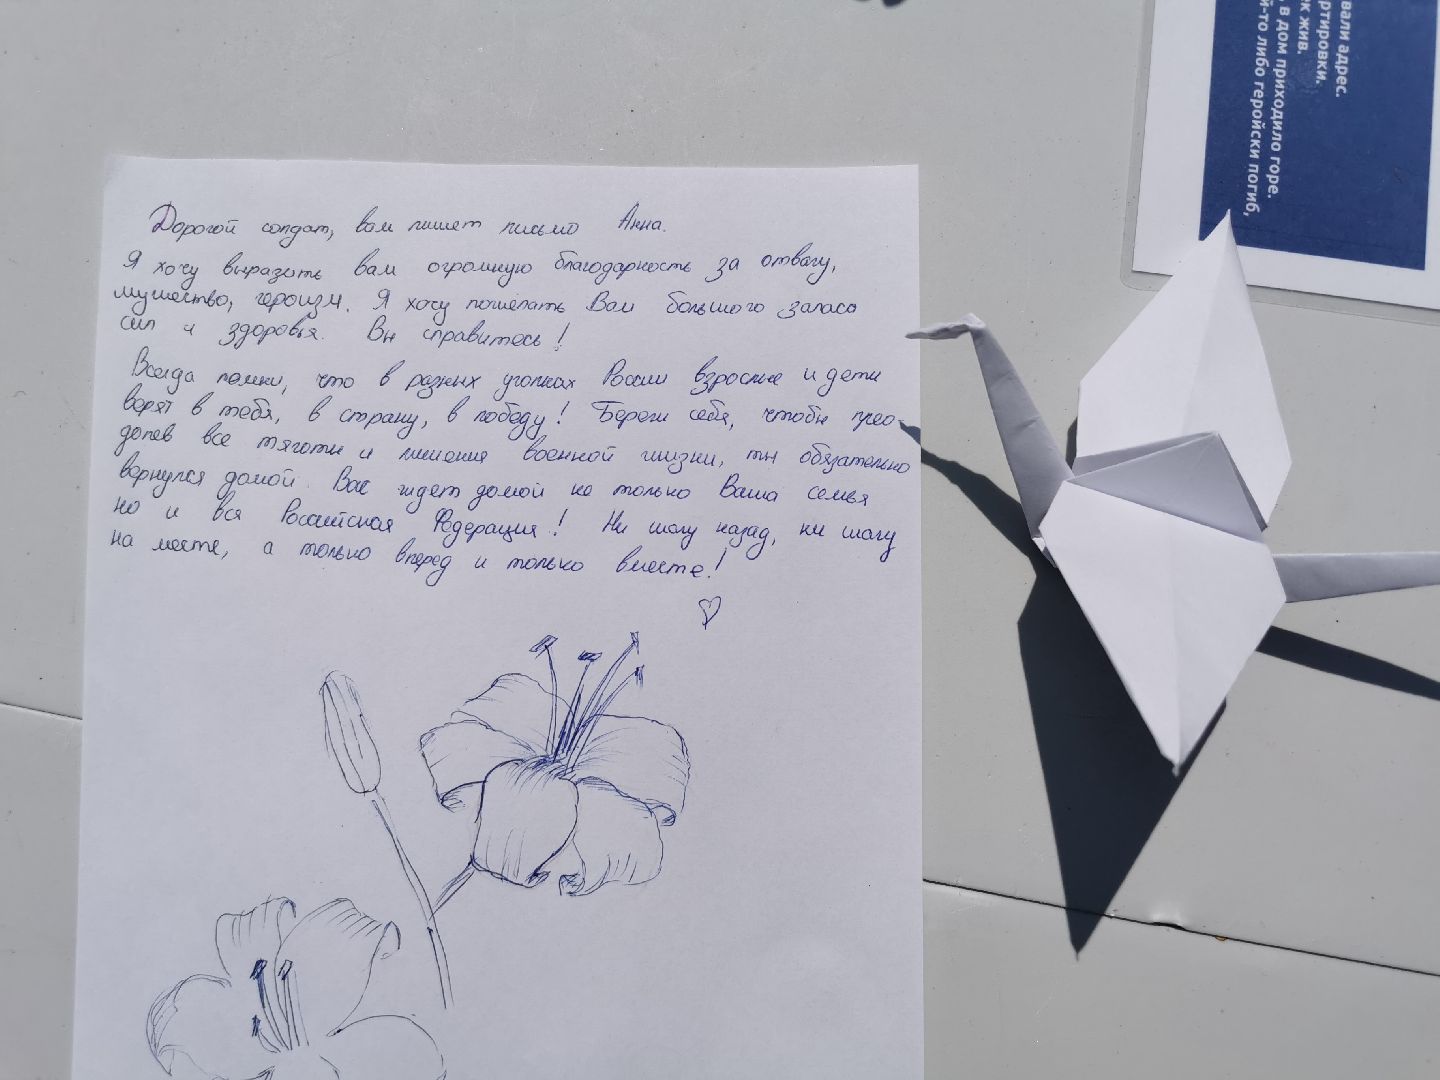 Дорогой солдат, вам пишет письмо Анна.
Я хочу выразить вам огромную благодарность за отвагу,
мужество, героизм. Я хочу пожелать Вам большого запаса
сил и здоровья. Вы справитесь!
Всегда помни, что в разных уголках России взрослые и дети
верят в тебя, в страну, в победу! Береги себя, чтобы прео-
долев все тяготы и лишения военной жизни, ты обязательно
вернулся домой. Вас ждет домой не только Ваша семья
но и вся Российская Федерация! Ни шагу назад, ни шагу
на месте, а только вперед и только вместе!
вали адрес.
ртировки.
к жив.
, в дом приходило горе.
й-то либо геройски погиб,